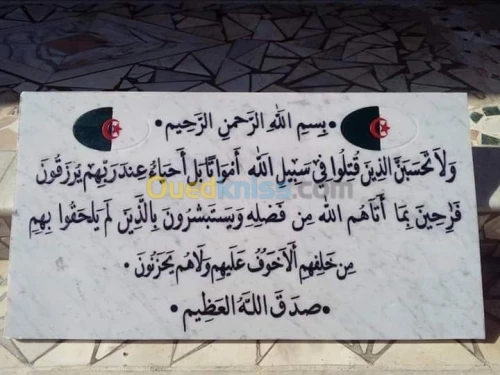 • بِسْمِ اللهِ الرَّحْمنِ الرَّحِيمِ •
وَلَا تَحْسَبَنَّ الَّذِينَ قُتِلُوا فِي سَبِيلِ اللهِ أَمْوَاتًا بَلْ أَحْيَاءٌ عِندَ رَبِّهِمْ يُرْزَقُونَ
فَرِحِينَ بِمَا آتَاهُمُ اللهُ مِن فَضْلِهِ وَيَسْتَبْشِرُونَ بِالَّذِينَ لَمْ يَلْحَقُوا بِهِم
مِن خَلْفِهِم أَلَاخَوْفٌ عَلَيهِم وَلَاهُم يَحْزَنُونَ •
• صَدَقَ اللهُ العَظِيمِ •
Ouedkniss.com